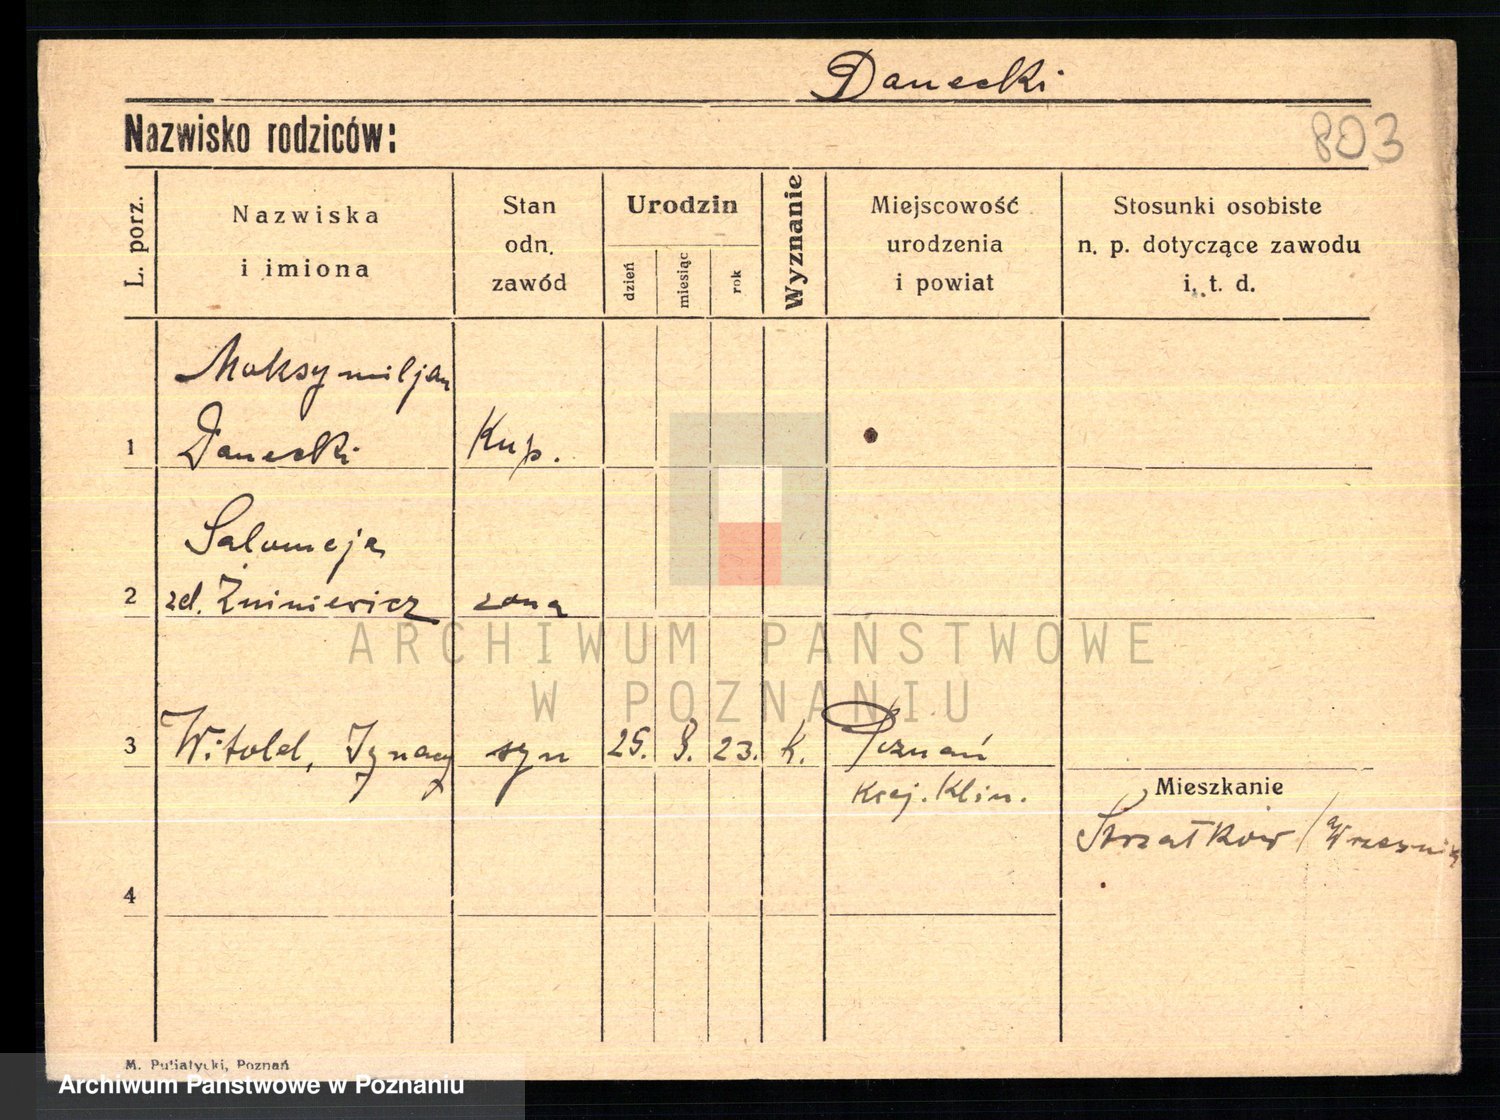 Danecki
Nazwisko rodziców:
803
L. porz.
Nazwiska
i imiona
Stan
odn.
zawód
Urodzin
dzień
miesiąc
rok
Wyznanie
Miejscowość
urodzenia
i powiat
Stosunki osobiste
n. p. dotyczące zawodu
i. t. d.
Maksymiljan
1 Danecki Kup.
Salomeja
2 zd. Żniniewicz zona
ARCHIWUM PAŃSTWOWE
W POZNANIU
3 Witold, Ignacy syn 25. 9. 23. K. Poznań
Klin.
Mieszkanie
Strzałków / Września
4
M. Putiatycki, Poznań
Archiwum Państwowe w Poznaniu